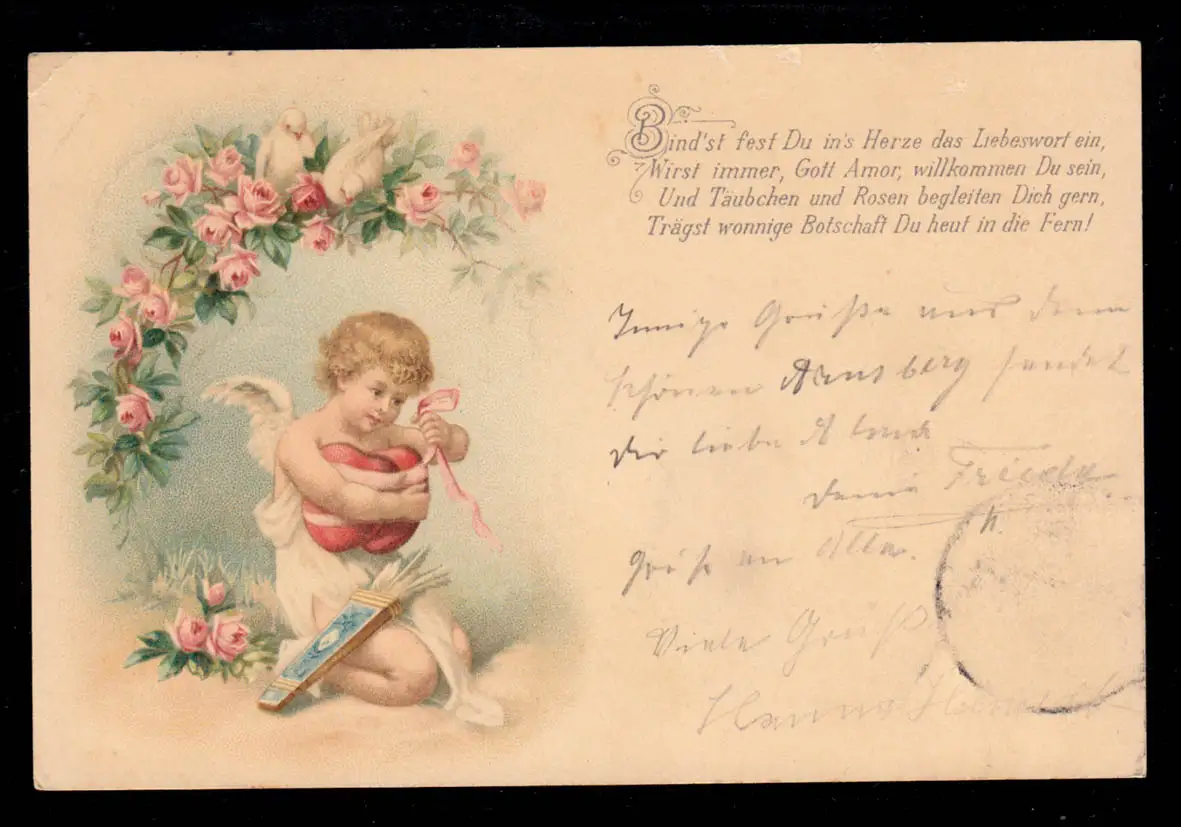 Bind'st fest Du in's Herze das Liebeswort ein,
Wirst immer, Gott Amor, willkommen Du sein,
Und Täubchen und Rosen begleiten Dich gern,
Trägst wonnige Botschaft Du heut in die Fern!
Innige Grüße aus dem
schönen Arnsberg sendet
Dir liebe
deine Frieda
Gruß an Alle.
Viele Grüß
Hanna